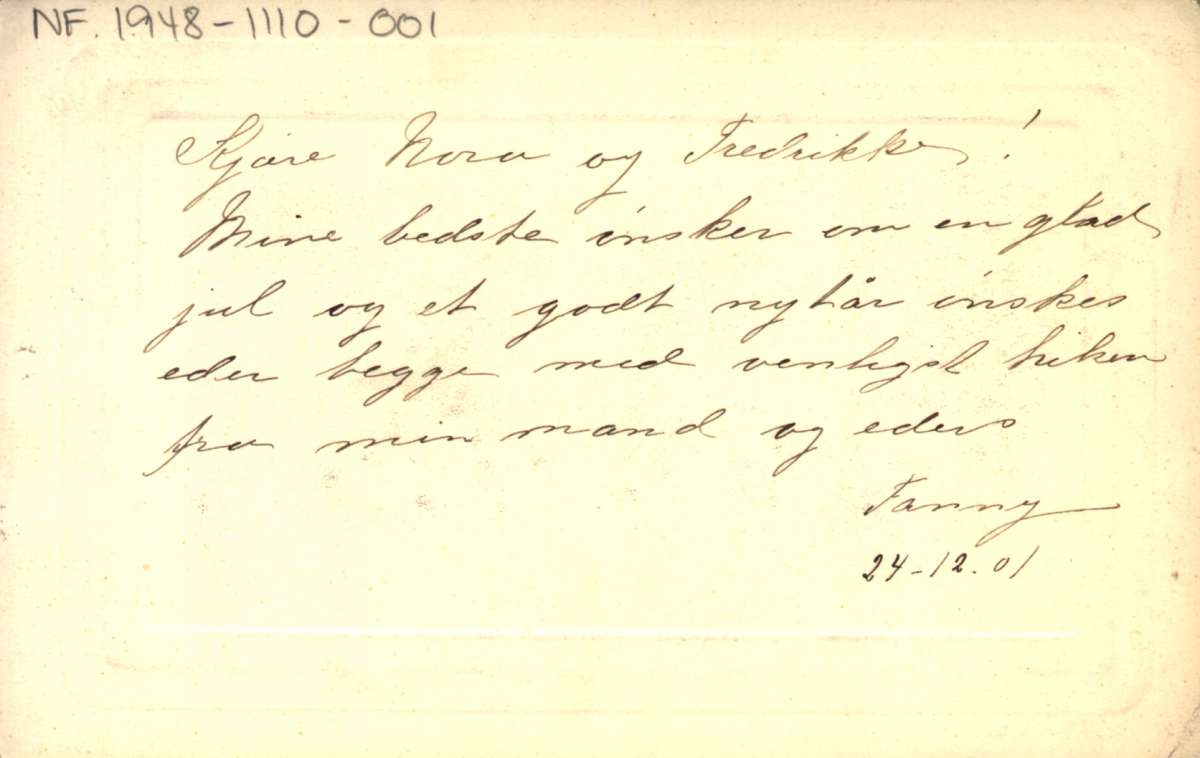 NF. 1948-1110-001
Kjære Nora og Fredrikke!
Mine bedste ønsker om en glad
jul og et godt nytår ønskes
eder begge med venligst hilsen
fra min mand og eders
Fanny
24-12.01